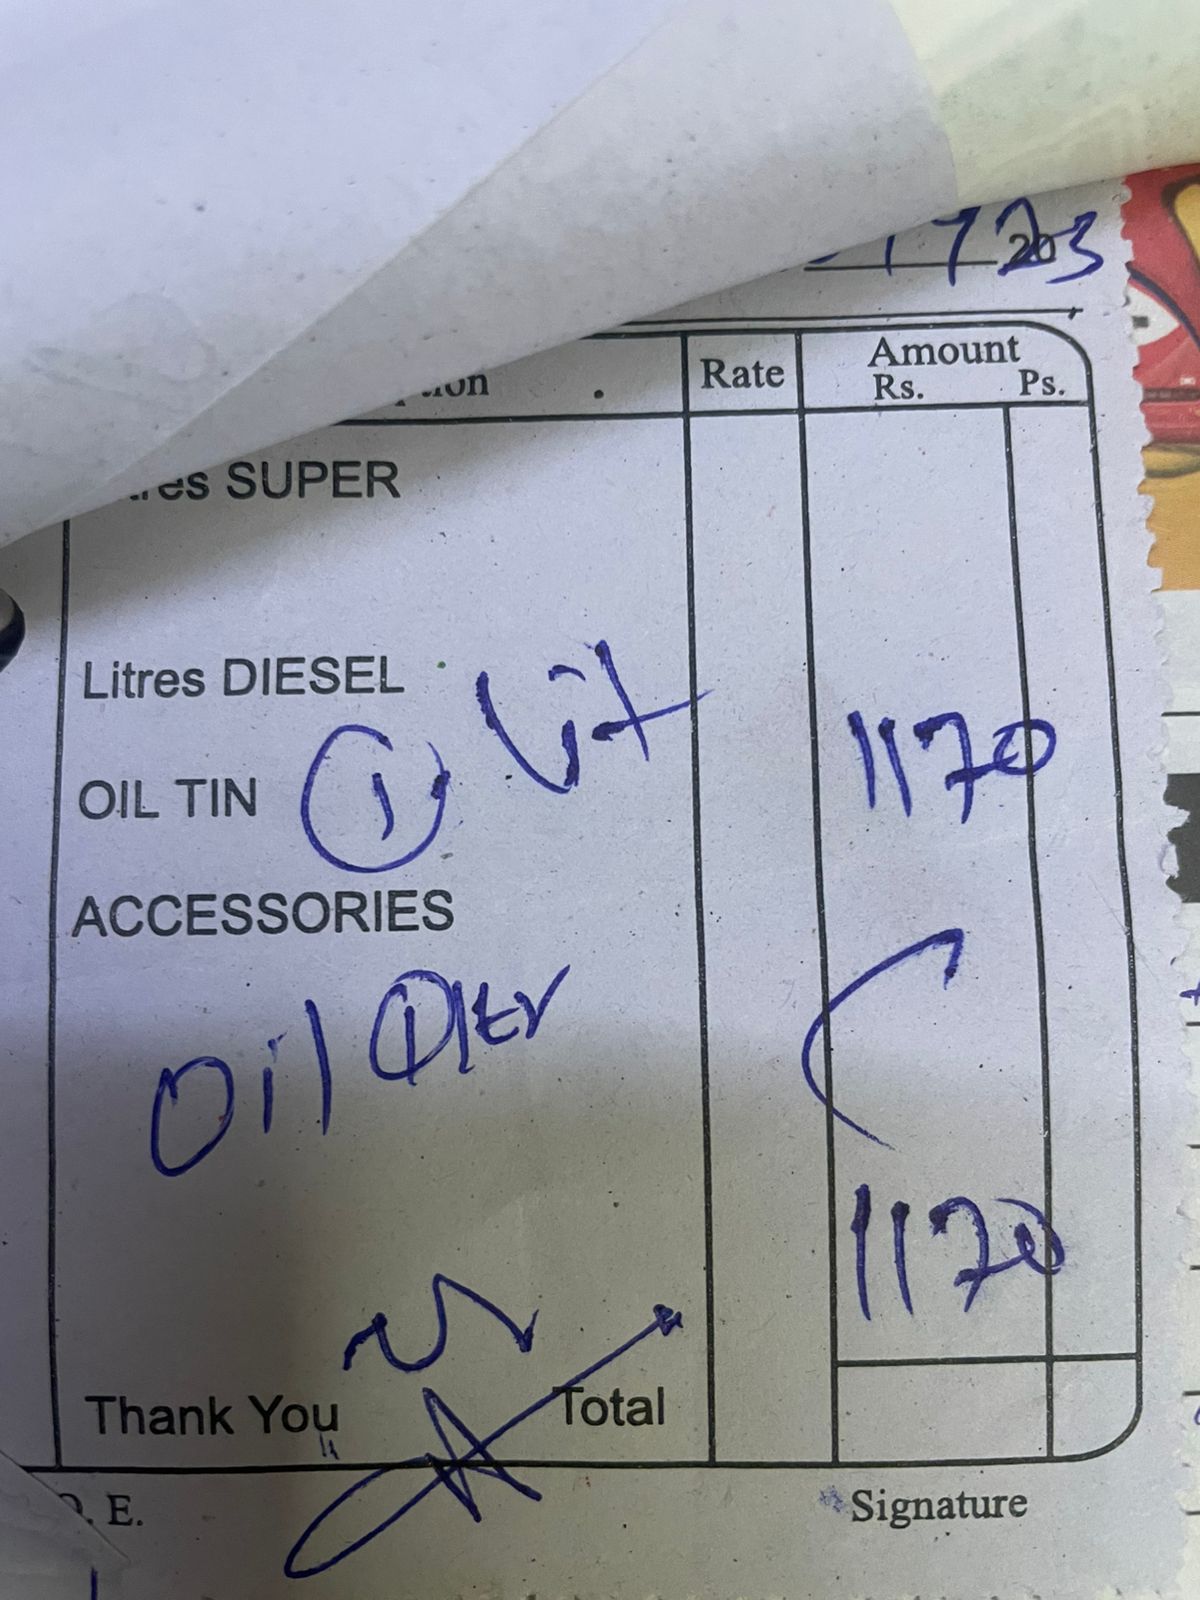 2023
Rate Amount
Rs. Ps.
SUPER
Litres DIESEL
Lit
OIL TIN 1 1170
ACCESSORIES
Oil 1 Ltr
1170
Thank You Total
E.
Signature